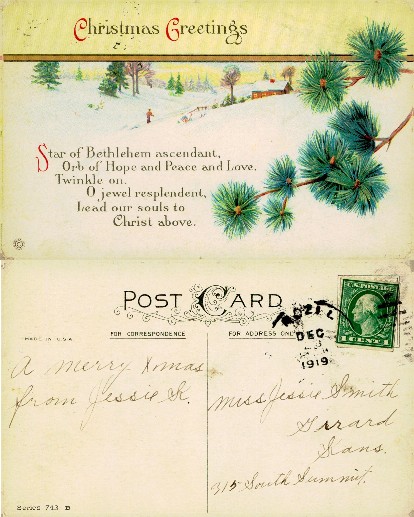 Christmas Greetings
Star of Bethlehem ascendant,
Orb of Hope and Peace and Love,
Twinkle on.
O jewel resplendent,
Lead our souls to
Christ above.
POST CARD
FOR CORRESPONDENCE
FOR ADDRESS ONLY
MADE IN U.S.A.
DEC
1919
U.S. POSTAGE
1 CENT 1
A Merry Xmas
from Jessie K.
Miss Jessie Smith
Girard
Kans.
315 South Summit.
Series 743 B